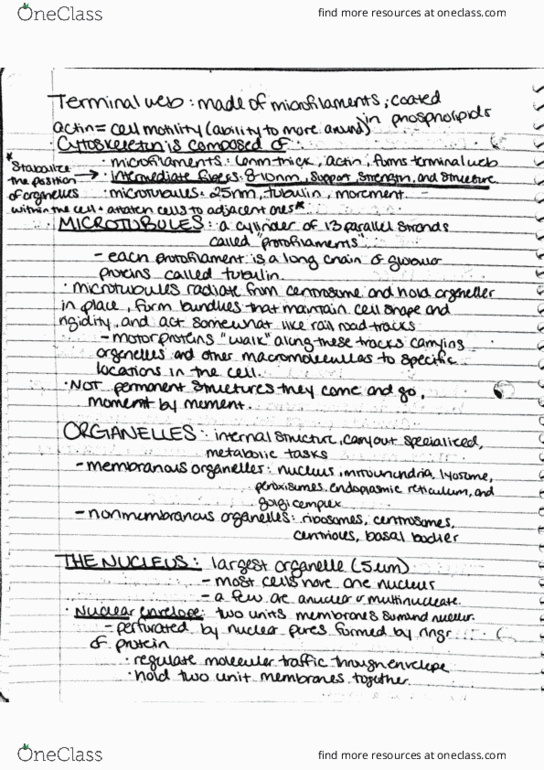 OneClass
find more resources at oneclass.com
Terminal web: made of microfilaments, coated
in phospholipids
actin = cell motility (ability to move around)
Cytoskeleton is composed of:
· microfilaments: 6nm thick, actin, forms terminal web
*Stabalize the position of organelles within the cell + attatch cells to adjacent ones*
→ · intermediate fibers: 8-10nm, support, strength, and structure
· microtubules: 25nm, tubulin, movement
MICROTUBULES: a cylinder of 13 parallel strands
called "protofilaments".
- each protofilament is a long chain of globular
proteins called tubulin.
· microtubules radiate from centrosome and hold organelles
in place, form bundles that maintain cell shape and
rigidity, and act somewhat like rail road tracks
- motor proteins "walk" along these tracks carrying
organelles and other macromolecules to specific
locations in the cell.
· NOT permanent structures they come and go,
moment by moment.
ORGANELLES: internal structure, carry out specialized,
metabolic tasks
- membranous organelles: nucleus, mitochondria, lysosome,
peroxisomes, endoplasmic reticulum, and
golgi complex
- nonmembranous organelles: ribosomes, centrosomes,
centrioles, basal bodies
THE NUCLEUS: largest organelle (5um)
- most cells have one nucleus
- a few are anuclear or multinucleate.
· Nuclear envelope: two units membranes surround nucleus.
- perforated by nuclear pores formed by rings
of protein
· regulate molecular traffic through envelope
· hold two unit membranes together.
OneClass
find more resources at oneclass.com